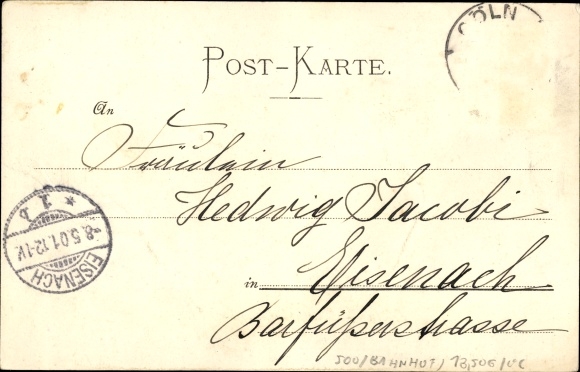 CÖLN
POST-KARTE.
An
Fräulein
Hedwig Jacobi
in Eisenach
Barfüßerstrasse
EISENACH
8.5.01.12-1V.
* 1 b
500/BAHNHOT/ 13,50€/